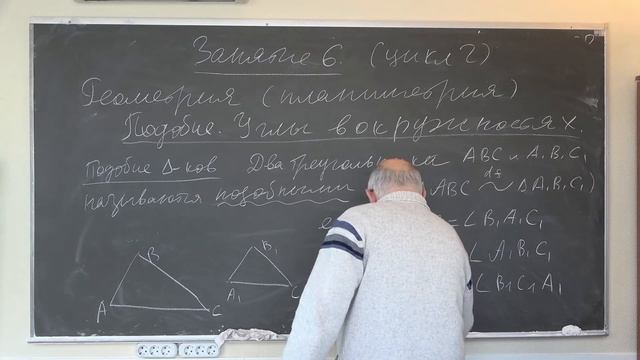 Занятие 6. (цикл 2)
Геометрия (планиметрия)
Подобие. Углы в окружностях.
Подобие Δ-ков Два треугольника ABC и A₁B₁C₁
называются подобными ABC ~ ΔA₁B₁C₁)
df
= ∠B₁A₁C₁
∠A₁B₁C₁
∠B₁C₁A₁
B B₁
A C A₁ C